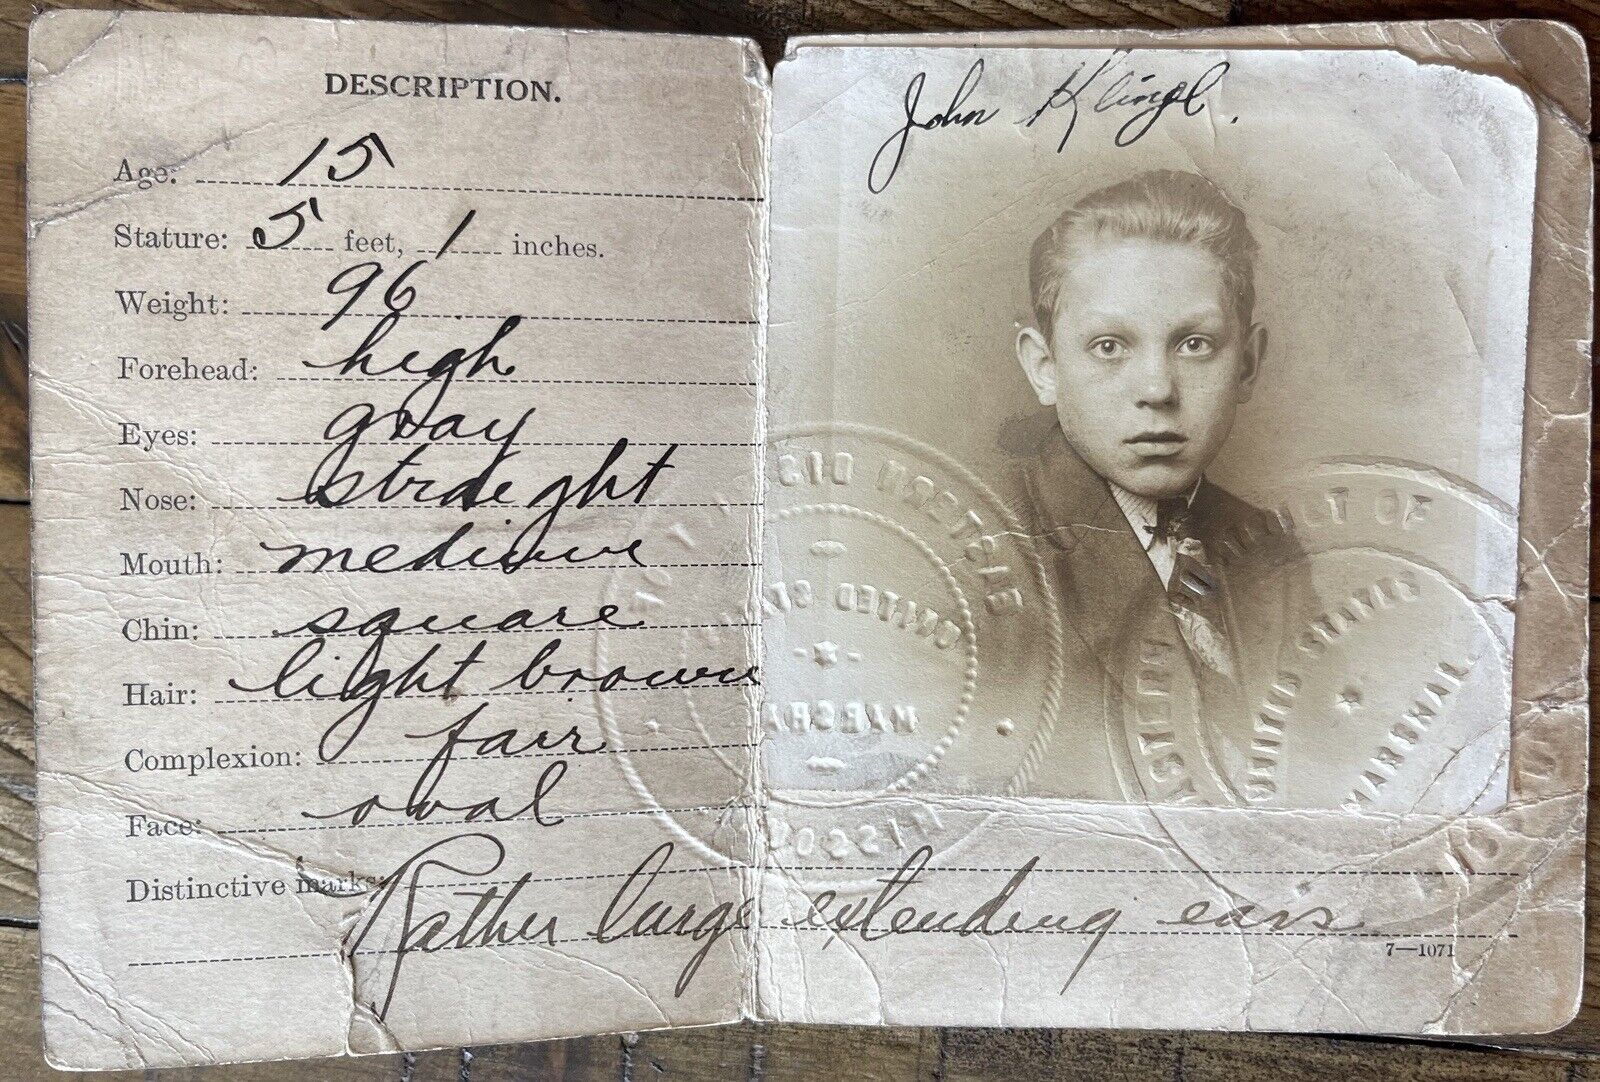 DESCRIPTION.
Age: 15
Stature: 5 feet, 1 inches.
Weight: 96
Forehead: high
Eyes: gray
Nose: straight
Mouth: medium
Chin: square
Hair: light brown
Complexion: fair
Face: oval
Distinctive marks:
Rather large extending ears
7—1071
John Klingl.
EASTERN DIS
UNITED STA
MARSHA
MISSOU
EASTERN
ICT OF
UNITED STATES
MARSHAL